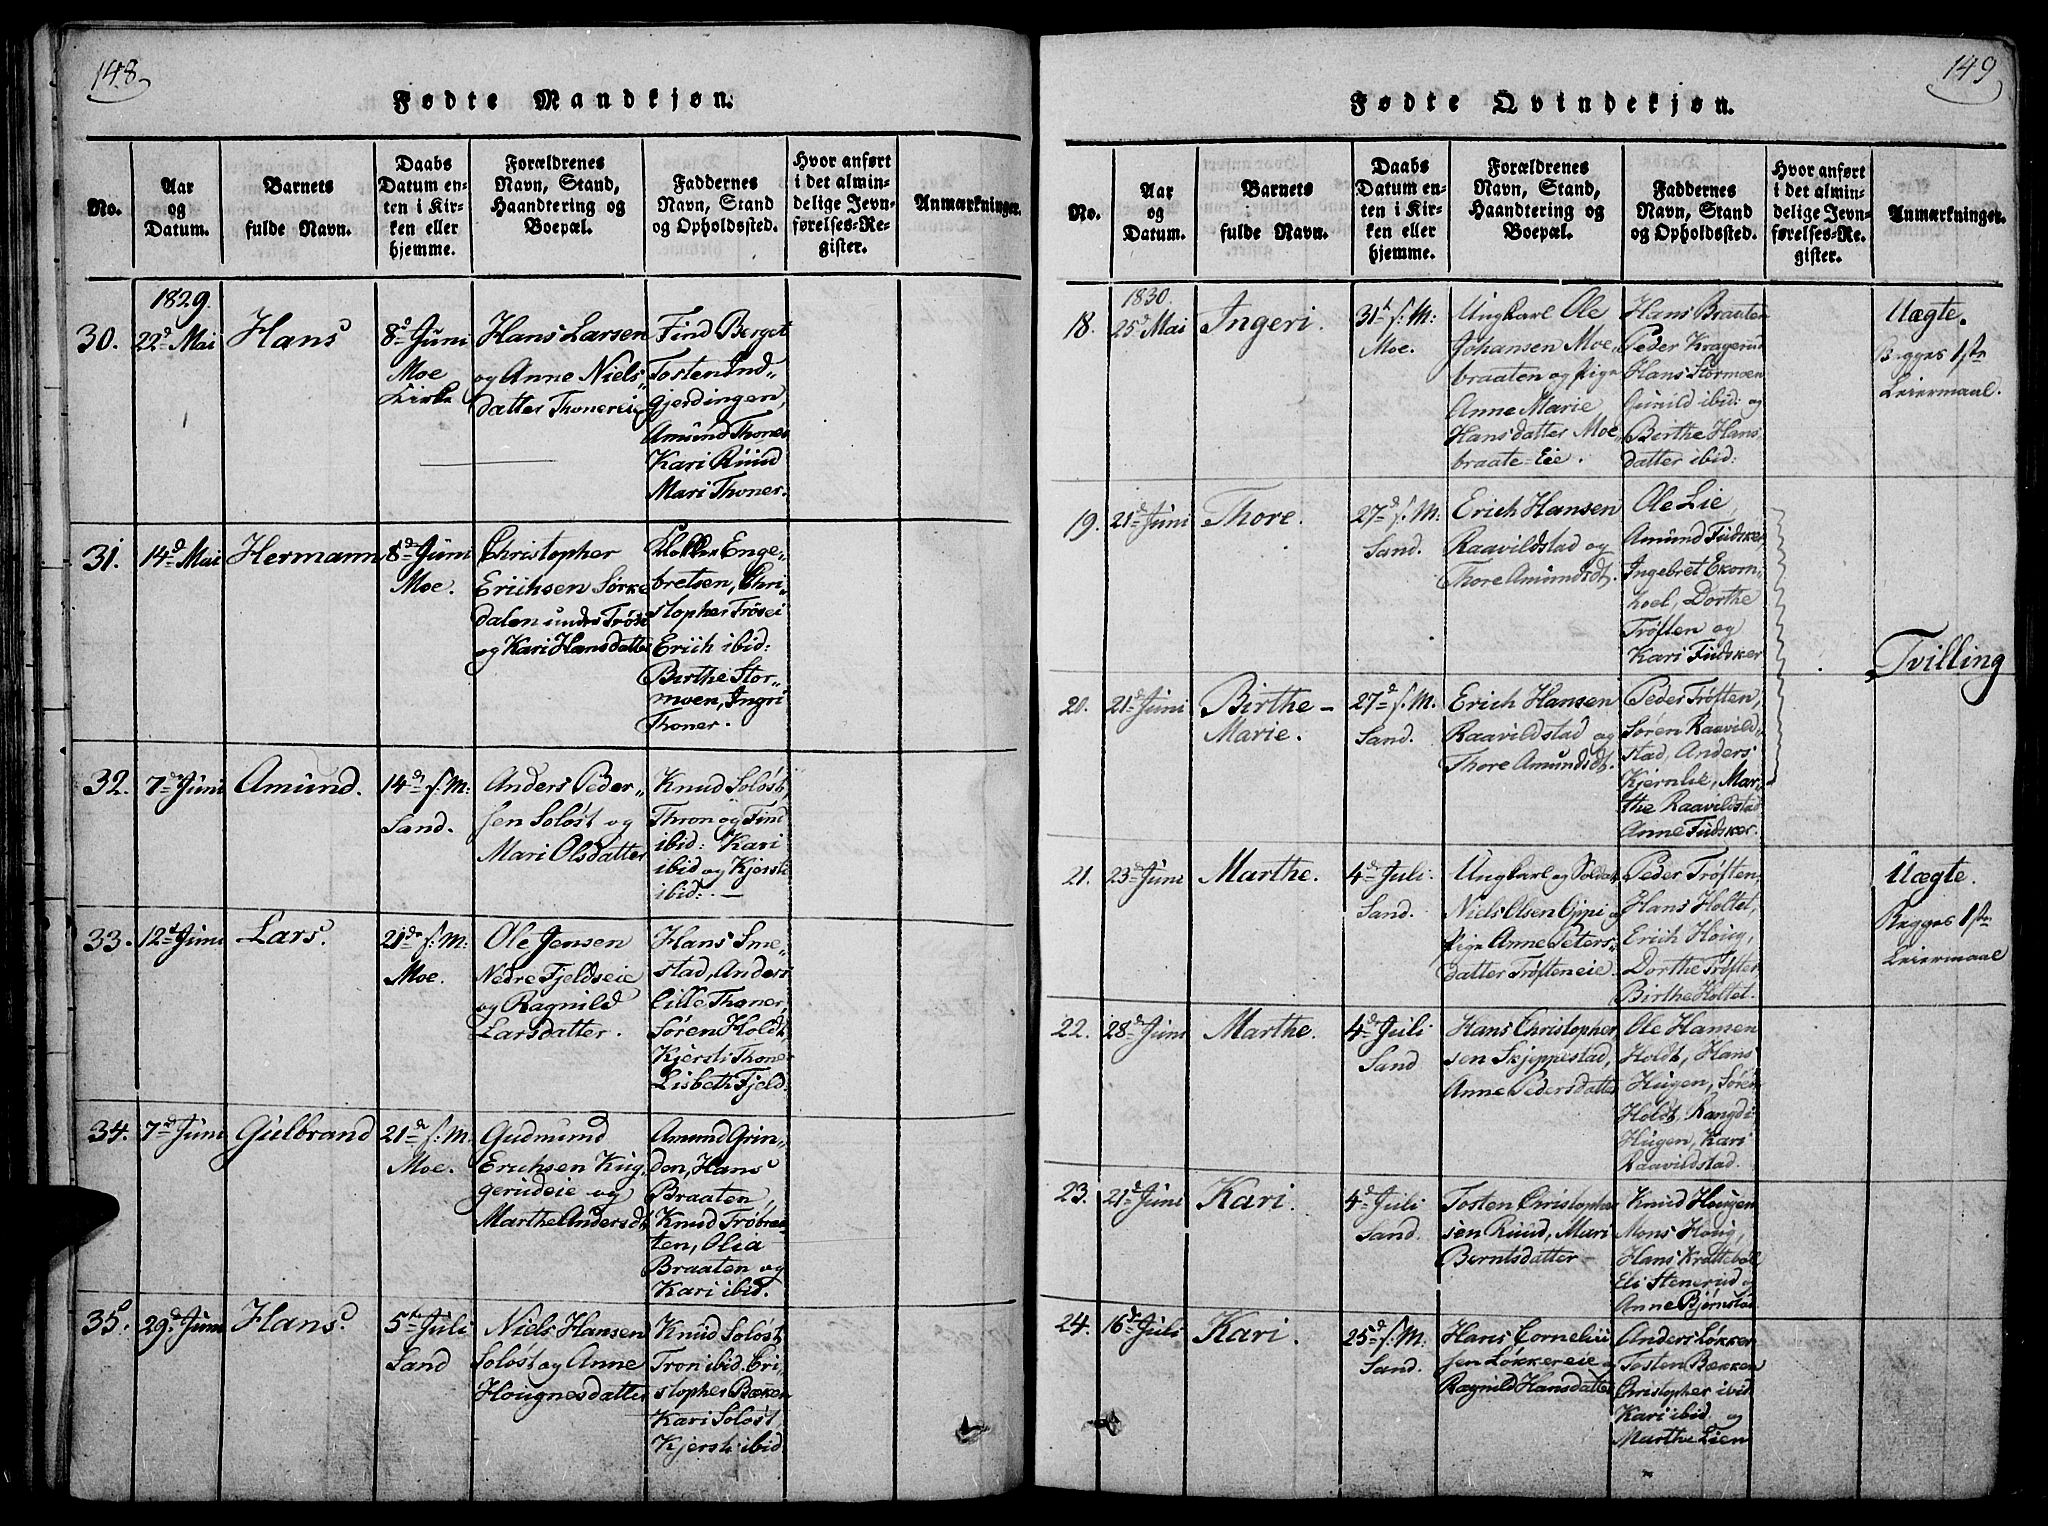 148.
Fødte Mandkjøn.
No.
Aar
og
Datum.
Barnets
fulde Navn.
Daabs
Datum en-
ten i Kir-
ken eller
hjemme.
Forældrenes
Navn, Stand,
Haandtering og
Boepæl.
Faddernes
Navn, Stand
og Opholdssted.
Hvor anført
i det almin-
delige Jevn-
førelses-Re-
gister.
Anmærkninger.
1829.
30.
22d Mai
Hans
8d Juni
Moe
Kirke
Hans Larsen
og Anne Niels„
datter Thonereie
Find Berget
Tosten Ind„
gjerdingen,
Amund Thoner
Kari Ruud
Mari Thoner.
31.
14d Mai
Hermann
8de Juni
Moe.
Christopher
Erichsen Sørke
dalen under Frøse
og Kari Hansdatter
Enge-
bretsen, Chri-
stopher Frøsei
Erich ibid:
Birthe Stor„
moen, Ingri
Thoner.
32.
7de Juni
Amund.
14de s: M:
Sand.
Anders Peder„
sen Soløst og
Mari Olsdatter
Knud Soløst,
Thron og Find
ibid: Kari
ibid og Kjersti
ibid: —
33.
12t Juni
Lars.
21de s: M:
Moe.
Ole Jensen
Nedre Fjeldseie
og Ragnild
Larsdatter.
Hans Sme-
stad, Anders
Lille Thoner,
Søren Holdt,
Kjersti Thoner
Lisbeth Fjeld.
34.
7d Juni
Gulbrand
21de s: M.
Moe.
Gudmund
Erichsen Kug„
gerudeie og
Marthe Andersdt
Amund Grin„
den, Hans
Braaten,
Knud Frøbraa
ten, Olia
Braaten og
Kari ibid.
35.
29d Juni
Hans.
5te Juli
Sand
Niels Hansen
Soløst og Anne
Hougnesdatter
Knud Soløst,
Tron ibid. Cri-
stopher Bækken
Kari Soløst,
Kjersti ibid
149
Fødte Qvindekjøn.
No.
Aar
og
Datum.
Barnets
fulde Navn.
Daabs
Datum en-
ten i Kir-
ken eller
hjemme.
Forældrenes
Navn, Stand,
Haandtering og
Boepæl.
Faddernes
Navn, Stand
og Opholdssted.
Hvor anført
i det almin-
delige Jevn-
førelses-Re-
gister.
Anmærkninger.
1830.
18.
25d Mai
Ingeri.
31t s: M:
Moe.
Ungkarl Ole
Johansen Moe„
braaten og Pige
Anne Marie
Hansdatter Moe„
braate-Eie.
Hans Braaten
Peder Kragerud
Hans Stormoen
Gunild ibid: og
Birthe Hans
datter ibid:
Uægte.
Begges 1ste
Leiermaal.
19.
21d Juni
Thore.
27de s: M:
Sand.
Erich Hansen
Raavildstad og
Thore Amundsdt.
Ole Lie,
Amund Fudsker,
Ingebret Ekorn„
hoel, Dorthe
Trøften og
Kari Fudsker
Tvilling
20.
21d Juni
Birthe –
Marie.
27d s: M.
Sand.
Erich Hansen
Raavildstad og
Thore Amundsdt.
Peder Trøften,
Søren Raavild„
stad, Anders
Kjernlie, Mar„
the Raavildstad
Anne Fudsker.
21.
23d Juni
Marthe.
4de Juli.
Sand.
Ungkarl og Soldat
Niels Olsen Gjpi og
Pige Anne Peters„
datter Trøfteneie.
Peder Trøften,
Hans Holtet,
Erich Houg,
Dorthe Trøften
Birthe Holtet.
Uægte.
Begges 1ste
Leiermaal
22.
28d Juni
Marthe.
4de Juli
Sand
Hans Christopher„
sen Skjeppestad,
Anne Pedersdatter
Ole Hansen
Holdt, Hans
Hugen, Søren
Holdt Rangdi
Hugen, Kari
Raavildstad.
23.
21d Juni
Kari.
4d Juli
Sand.
Tosten Christopher
sen Ruud, Mari
Berntsdatter –
Knud Hougen
Mons Houg,
Hans Krattebøl
Eli Stenerud og
Anne Bjørnstad
24.
16d Juli
Kari.
25d s: M:
Sand.
Hans Cornelii
sen Løkkereie og
Ragnild Hansdatter
Anders Løkker
Tosten Bækken
Christopher ibid
Kari ibid og
Marthe Lien